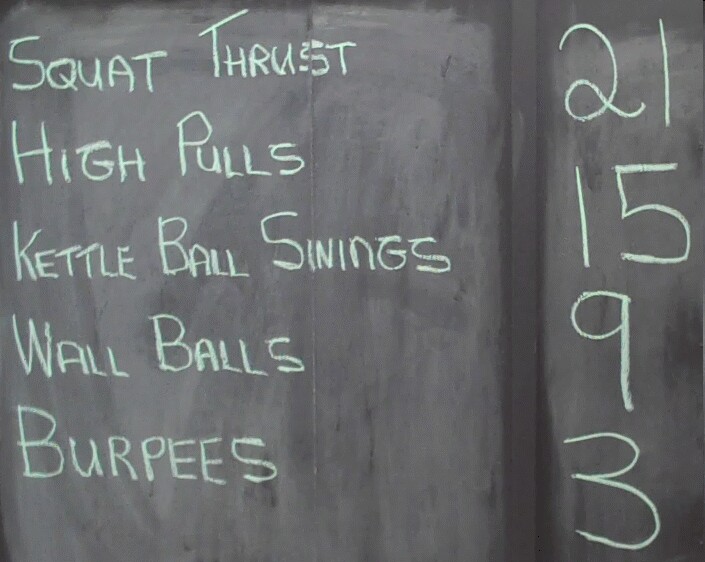 SQUAT THRUST
HIGH PULLS
KETTLE BALL SWINGS
WALL BALLS
BURPEES
21
15
9
3